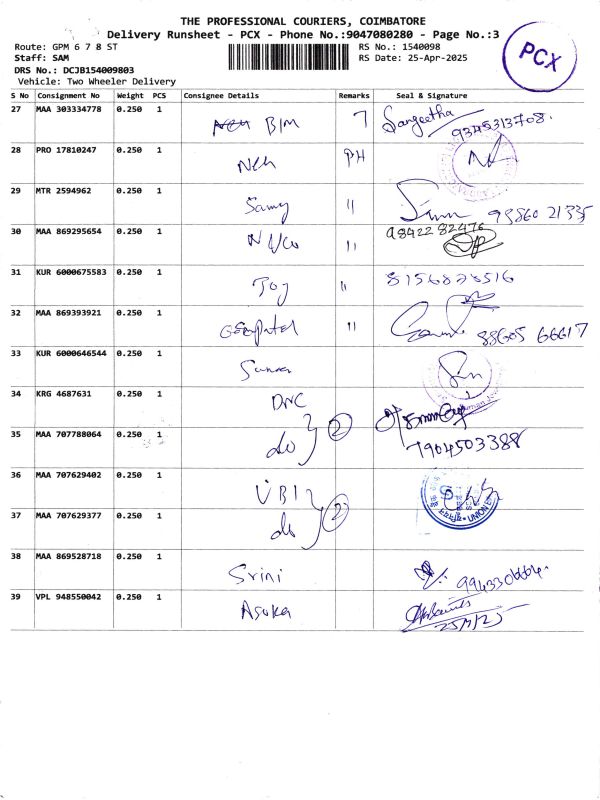 THE PROFESSIONAL COURIERS, COIMBATORE
Delivery Runsheet - PCX - Phone No.:9047080280 - Page No.:3
Route: GPM 6 7 8 ST
RS No.: 1540098
Staff: SAM
RS Date: 25-Apr-2025
DRS No.: DCJB154009803
Vehicle: Two Wheeler Delivery
PCX
S No Consignment No Weight PCS Consignee Details Remarks Seal & Signature
27 MAA 303334778 0.250 1 BIM Sangeetha
9345313708.
28 PRO 17810247 0.250 1 PH
29 MTR 2594962 0.250 1 Samy 11
30 MAA 869295654 0.250 1 11 9842282476
31 KUR 6000675583 0.250 1 Joj 11 8156828516
32 MAA 869393921 0.250 1 11 88605 66617
33 KUR 6000646544 0.250 1
34 KRG 4687631 0.250 1 DNC
35 MAA 707788064 0.250 1 do 2 7904503388
36 MAA 707629402 0.250 1 UBI
37 MAA 707629377 0.250 1 do 2
38 MAA 869528718 0.250 1 Srini
39 VPL 948550042 0.250 1 Asoka